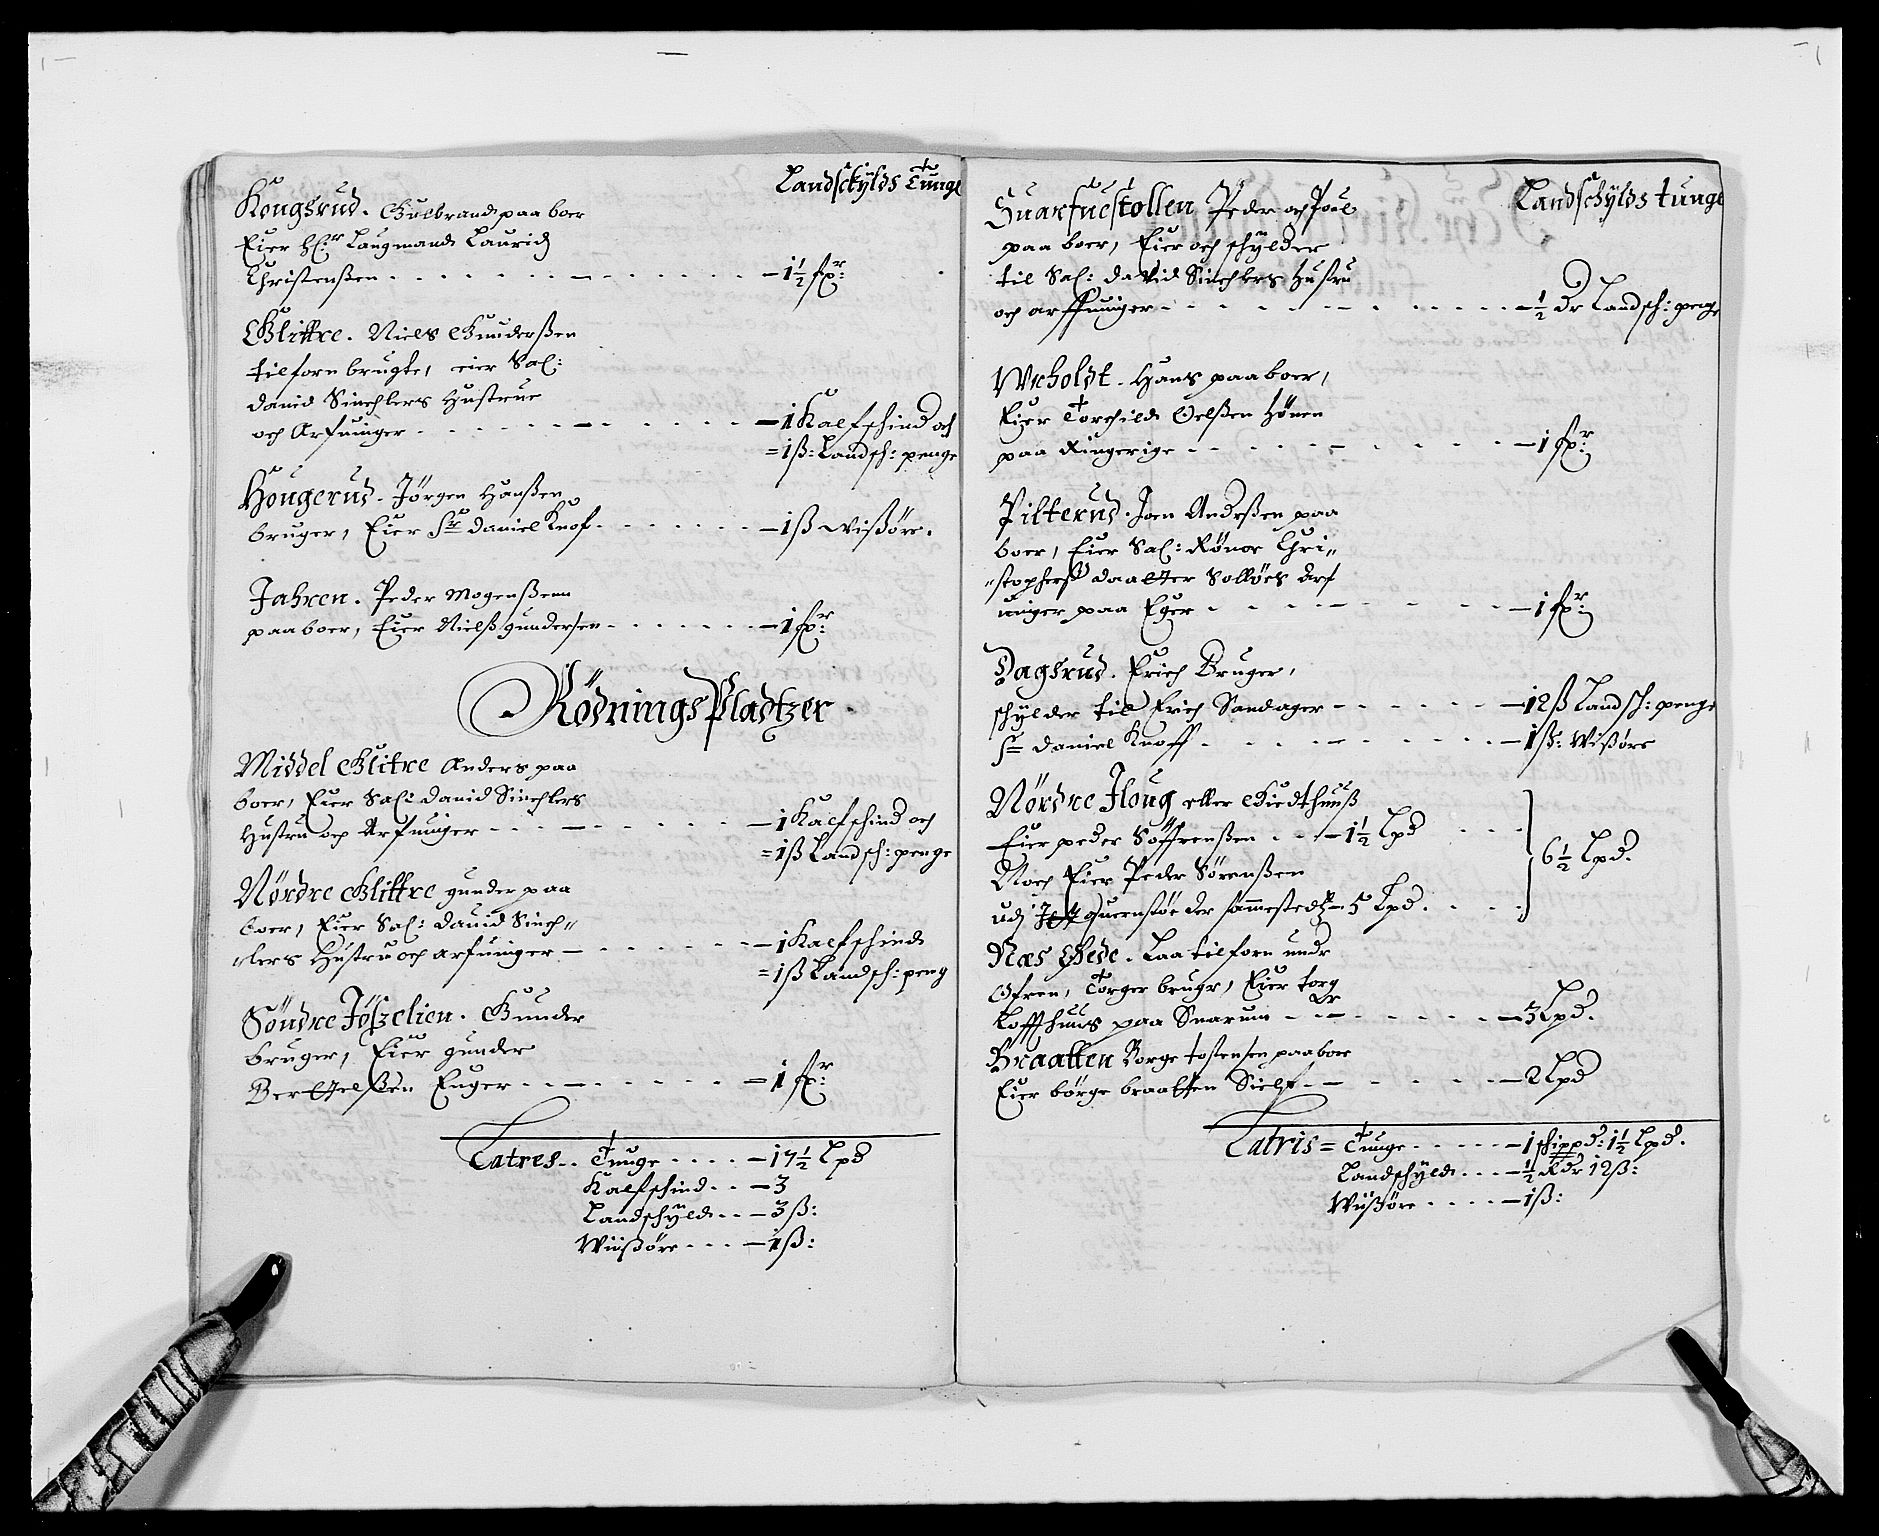 Landschÿlds Tunge
Kongsrud. Gulbrand paa boer
Eier H:r Laugmand Lauridz
Christenßen - 1½ fx:r
Glittre. Niels Gunderßen
tilforn brugte, eier Sal:
David Sinchlers Hustrue
och Arfuinger - 1 Kalfschind och
= 1ß: Landsch: penge
Hougerud. Jörgen Hanßen
bruger, Eier Sr Daniel Knof - 1ß Wißöre.
Jahren. Peder Mogenßenn
paaboer, Eier Nielß gundersen - 1 fx:r
Rödnings Pladtzer.
Middel Glitre Anders paa
boer, Eier Sal: David Sinchlers
Hustru och Arfuinger - 1 Kalfschind och
= 1ß Landsch: penge
Nördre Glittre gunder paa
boer, Eier Sal: David Sinch„
„lers Hustru och arfuinger - 1 Kalfschind
= 1ß Landsch: peng
Söndre Gunder
bruger, Eier gunder
Enger = 1 fx:r
Latres.. Tunge - 17½ Lpd
Kalfschind - 3
Landschÿld - 3ß:
Wiißöre - 1ß:
Landschÿlds tunge
Huarfuestollen Peder och Poul
paa boer, Eier och schÿlder
til Sal: David Sinchlers Hustru
och arffuinger - ½ Dr Landsch: peng
Wrholdt. Hans paaboer,
Eier Torchild Oelßen Hönen
paa Ringerige - 1 fx:r
Pilterud. Joen Anderßen paa
boer, Eier Sal: Rönor Chri„
„stopherß daatter Solløes Arf
uinger paa Eger - 1 fx:r
Dagsrud. Erich Bruger,
schÿlder til Erich Sandager - 12ß Landsch: penge
Sr Daniel Knoff - 1ß: Wißöre
Nördre Houg eller Giedthuuß
Eier peder Söffrenßen - 1½ Lpd
Noch Eier Peder Sörenßen
6½ Lpd.
udj quernstöe der sammestedz - 5 Lpd.
Næs Eede. Laa tilforn undr
Ofren, Torger brugr, Eier torg
Loffthuus paa Snarum - 3 Lpd.
Braatten Borge tostensen paaboer
Eier börge braatten Sielf - 2 Lpd
Latris = Tunge - 1 schippd: 1½ Lpd.
Landschÿld - ½ Rdr 12ß:
Wiißöre - 1ß: